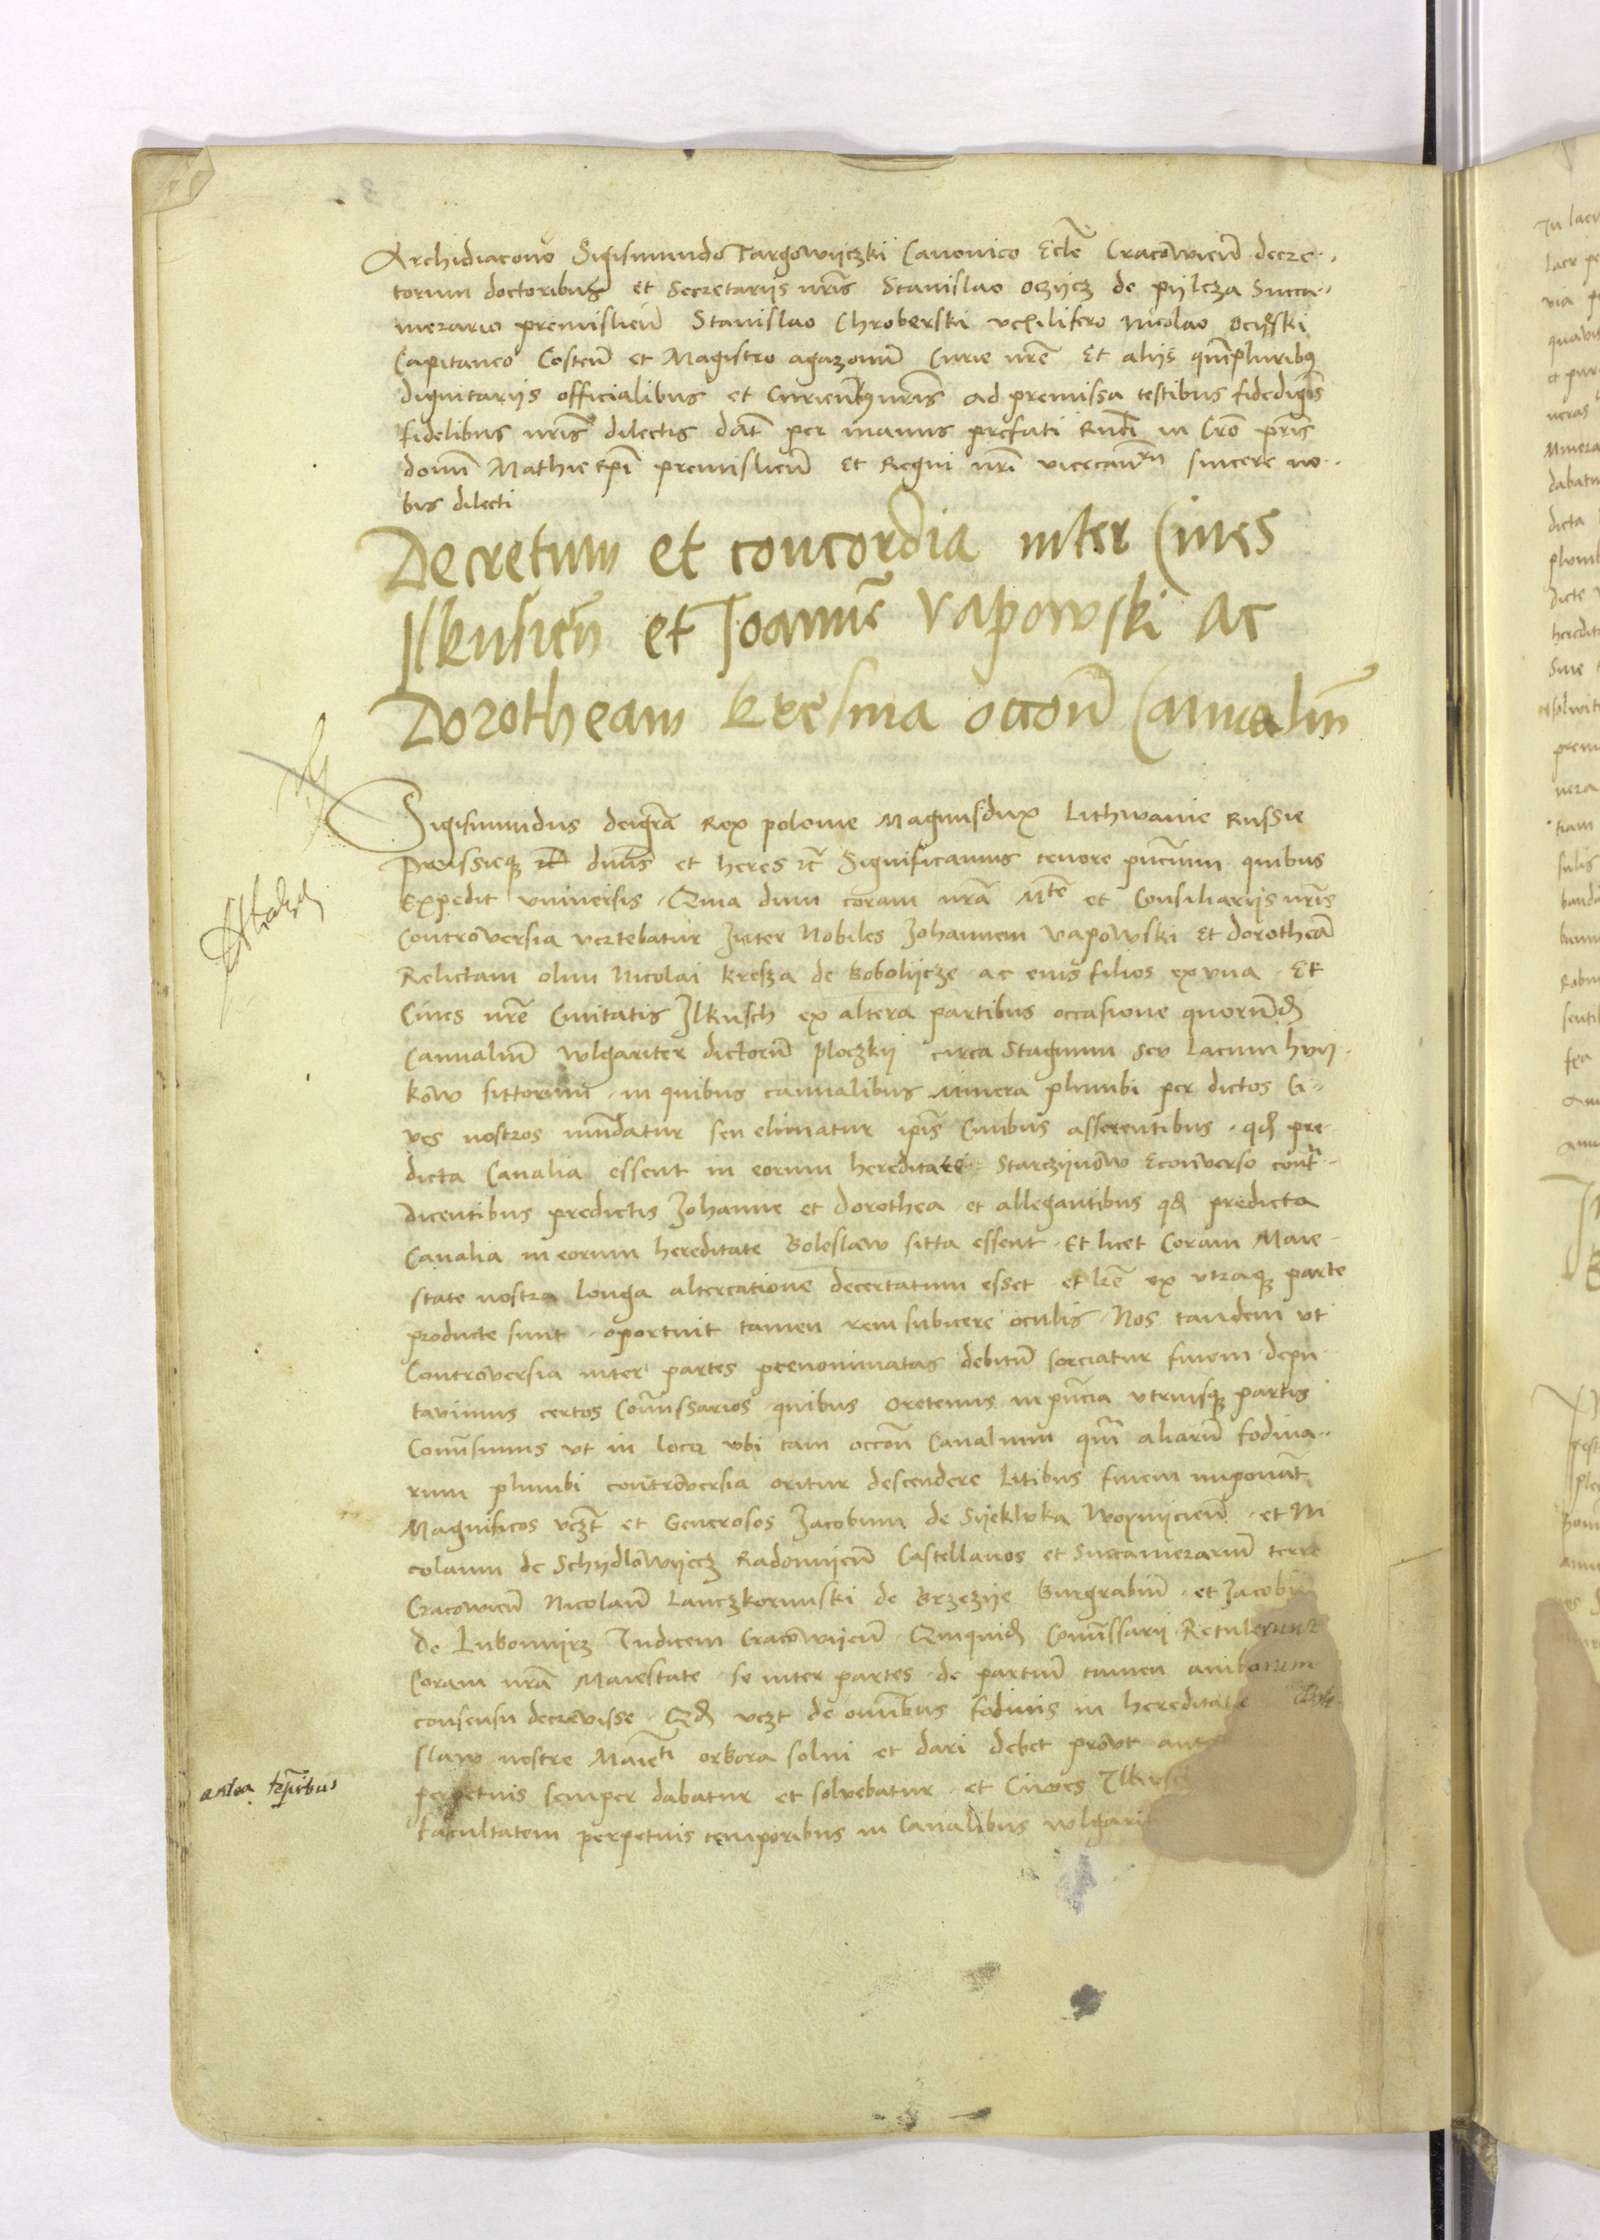 Archidiacono Sigismundo Targowijczki Canonico Eccle Cracowien̄ decre-
torum doctoribus et Secretarijs nr̄is Stanislao oczijcz de pijlcza Succa-
merario premislien̄ Stanislao Chroberski vexillifero Nicolao
Capitaneo Costen̄ et Magistro agazonum̄ Curie nr̄e Et alijs qm̄pluribus
dignitarijs officialibus et Curien̄ nr̄is ad premissa testibus fidedignis
fidelibus nr̄is dilectis dat̄ per manus prefati in Cr̄o pr̄is
domī Mathie Ep̄i premislien̄ et Regni nr̄i vicecan̄ sincere no-
bis dilecti
Decretum et concordia inter Ciues
Ilkusien̄ et Joannē Vapowski Ac
Dorotheam kresina occon̄ Cannaliū
Sigismundus deigrā Rex polonie Magnusdux Lithwanie Russie
Prussieqꝫ dn̄us et heres ꝛc̄ Significamus tenore pn̄cium quibus
Expedit vniuersis Quia dum coram nrā Mte et Consiliarijs nr̄is
Controuersia vertebatur Inter Nobiles Johannem Vapowski Et dorotheā
Relictam olim Nicolai kresza de Bobolijcze ac eius filios ex vna Et
Ciues nr̄e Ciuitatis Ilkusch ex altera partibus occasione quorund̄
Cannaliū wlgariter dictorū ploczkij circa Stagnum seu Lacum hvij-
kow sittorum in quibus cannalibus Minera plumbi per dictos Ci-
ves nostros mūdatur seu elimatur ip̄is Ciuibus asserentibus qd̄ pre-
dicta Canalia essent in eorum hereditate Starczijnow Econuerso cont̄-
dicentibus predictis Johanne et dorothea et allegantibus qd̄ predicta
Canalia in eorum hereditate Boleslaw sitta essent Et licet Coram Maie-
state nostra longa altercatione decertatum esset et lr̄e ex vtraqꝫ parte
producte sunt oportuit tamen rem subicere oculis Nos tandem vt
Controuersia inter partes prenominatas debitū sorciatur finem depu
tavimus certos Com̄issarios quibus oretenus in pn̄cia vtriusqꝫ partis
Com̄isimus vt in loco vbi tam occon̄ Canalium qm̄ aliarū fodina-
rum plumbi controuersia oritur descendere litibus finem imponāt
Magnificos vczt̄ et Generosos Jacobum de Sijeklvka Woijnijcien̄ et Ni
colaum de Schijdlowijecz Radomijen̄ Castellanos et Succamerariū terre
Cracowien̄ Nicolaū Lanczkorunski de Brzezije Burgrabiū et Jacobū
de Lubomijrz Iudicem Cracowijen̄ Quiquid̄ Com̄issarij Retulerunt
Coram nrā Maiestate se inter partes de partiū tamen amborum
consensu decreuisse Qd̄ vczt de omībus fodinis in hereditate Bole
slaw nostre Maieti orbora solui et dari debet prout ante
antea tēpībus
perpetuis semper dabatur et soluebatur et Ciues Ilkusch
facultatem perpetuis temporibus in Canalibus wlgari